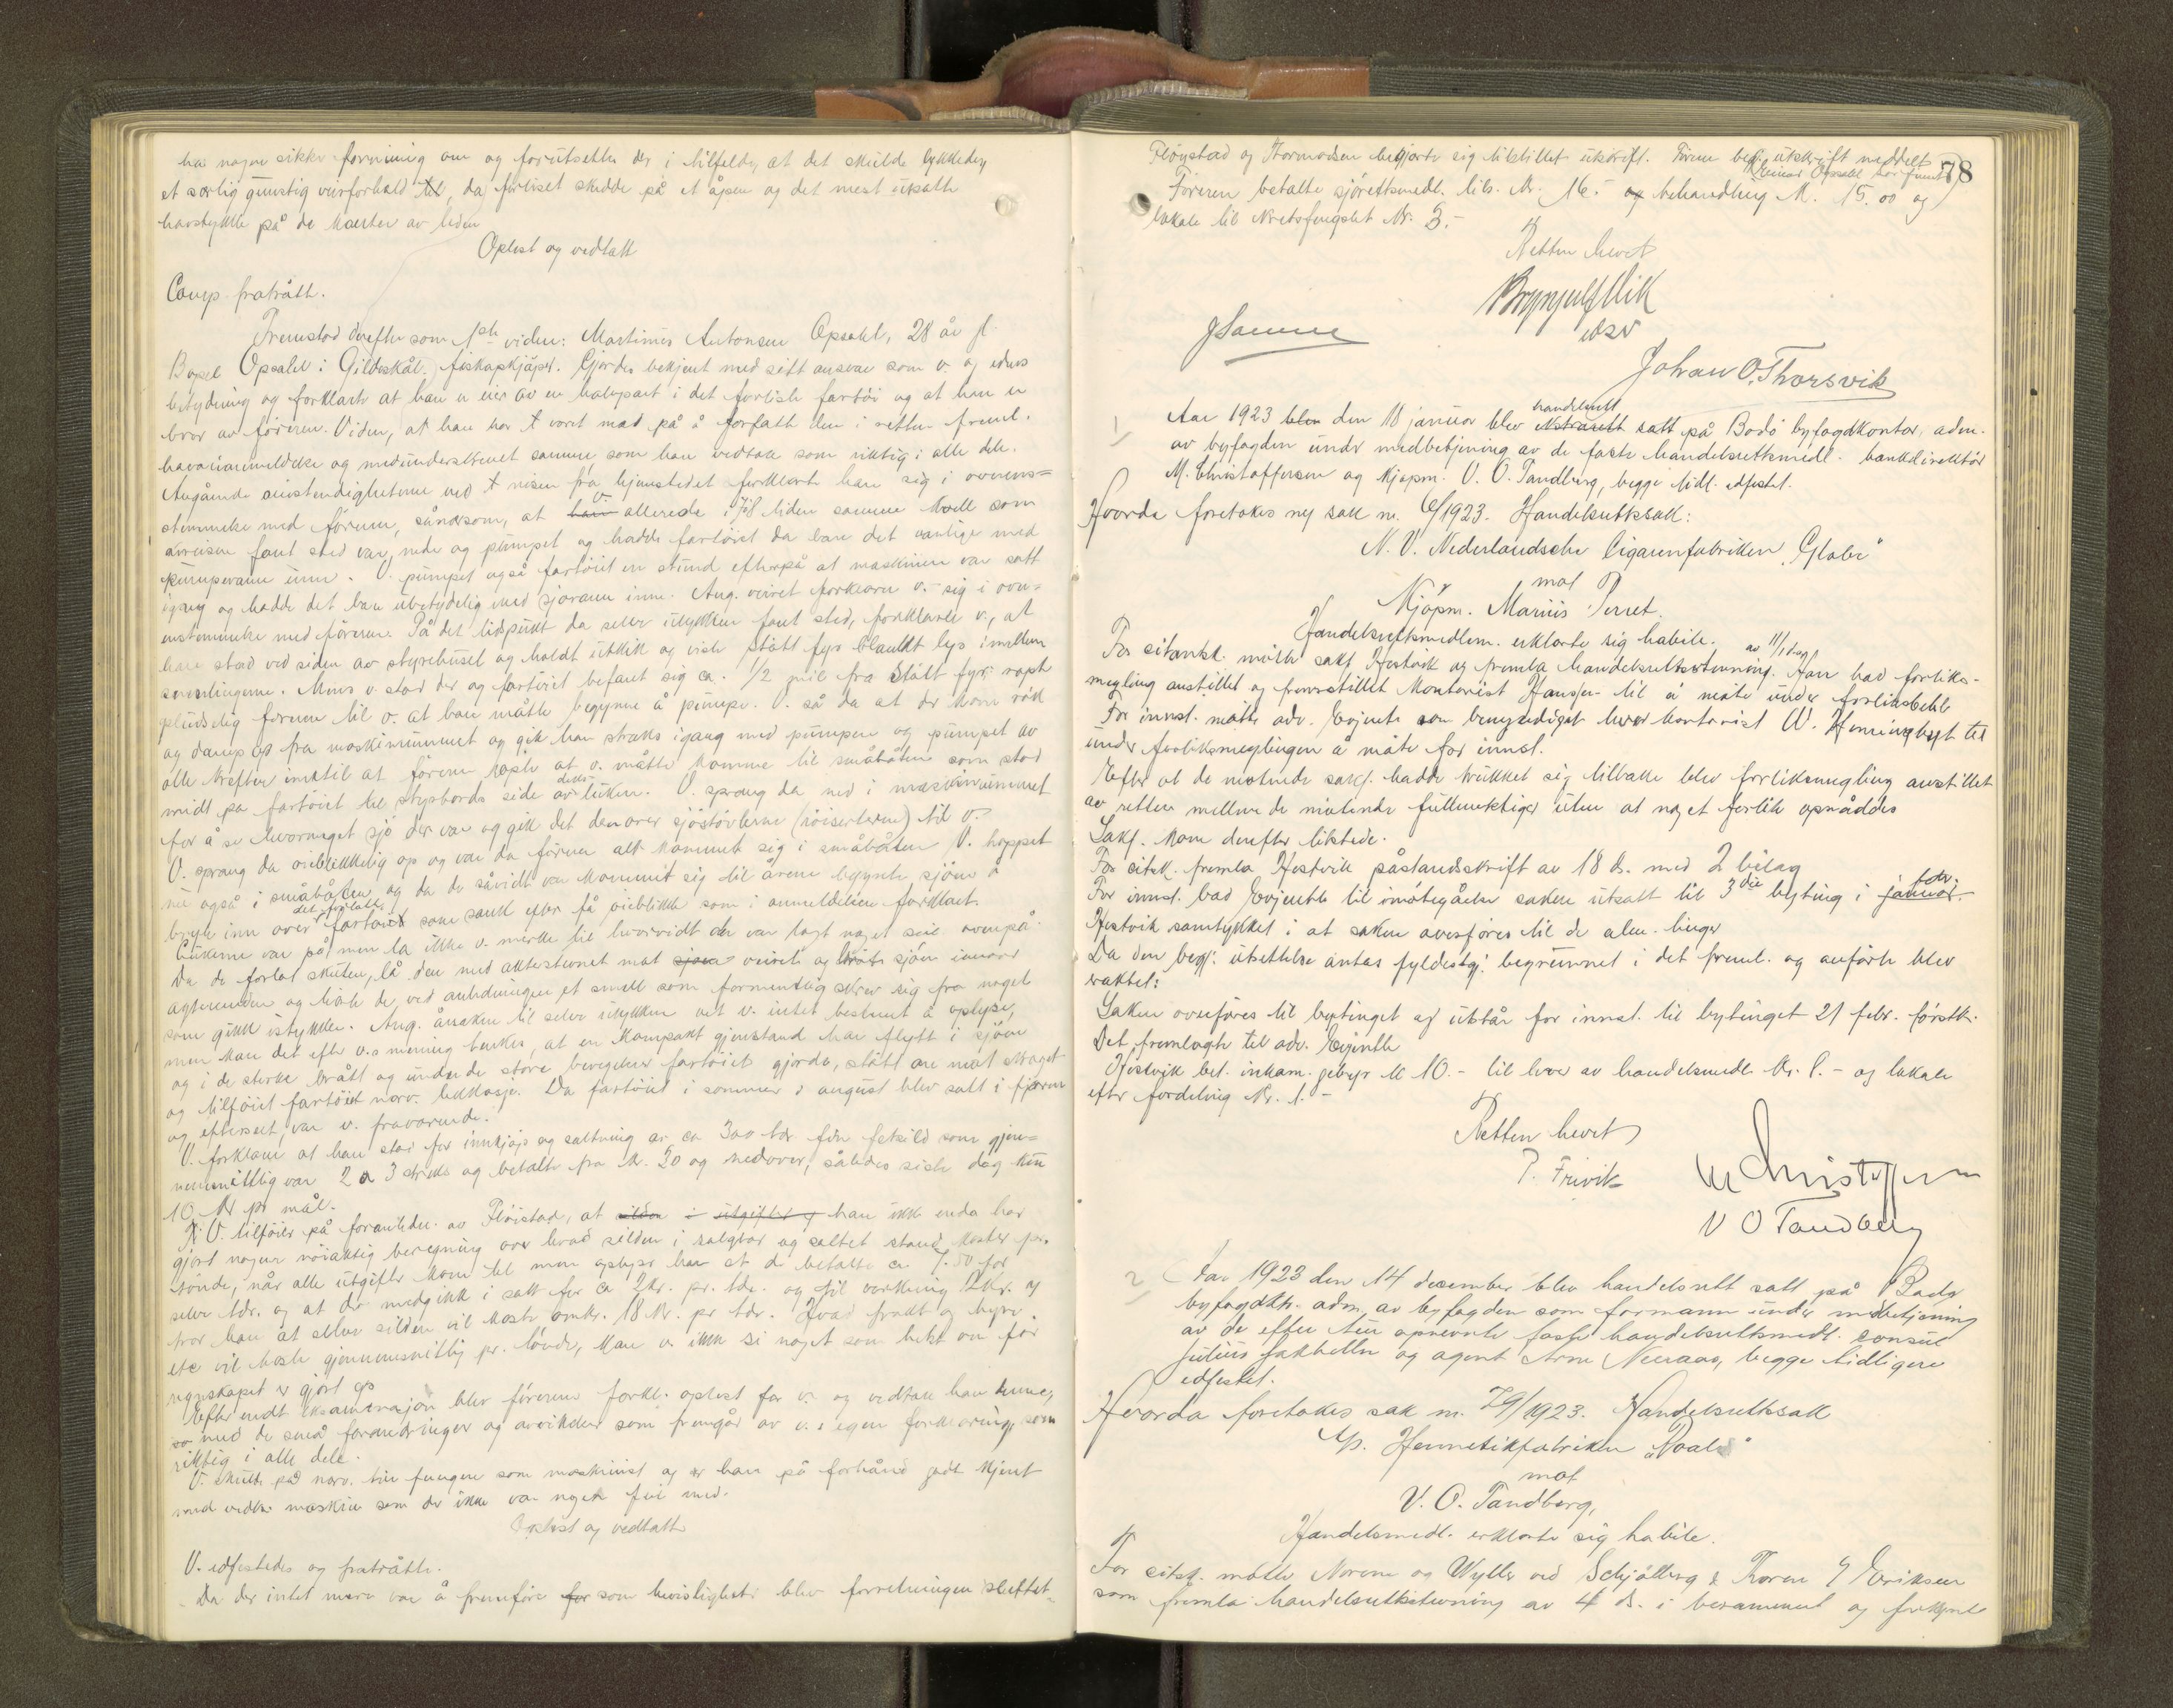 har nogen sikker formning om og forutsetter der i tilfelde, at det skulde lykkedes
et særlig gunstig veirforhold, da forliset skedde på et åpen og det mest utsatte
havstykke på de kanter av leden
Oplest og vedtatt
Comp. fratrådt.
Fremstod derefter som 1ste vidne: Martinus Antonsen Opsahl, 28 år g.
Bopel Opsahl i Gildeskål, fiskeopkjøper. Gjordes bekjent med sitt ansvar som v. og edens
betydning og forklarte at han er eier av en halvpart i det forliste fartøi og at han er
bror av føreren. Vidnet, at han har vært med på å forfatte den i retten freml.
havarianmeldelse og medunderskrevet samme som han vedtok som riktig i alle dele.
Angående omstendigheterne ved reisen fra hjemstedet forklarte han sig i overens-
stemmelse med føreren, såndsom, at v. allerede i 7-8 tiden samme kveld som
avreisen fant sted var nede og pumpet og hadde fartøiet da bare det vanlige med
pumpevann inne. V. pumpet også fartøiet en stund efterpå at maskinen var satt
igang og hadde det bare ubetydelig med sjøvann inne. Ang. veiret forklarer v. sig i over-
enstemmelse med føreren. På det tidspunkt da selve ulykken fant sted, forklarte v., at
han stod ved siden av styrehuset og holdt utkik og viste Støtt fyr blankt lys imellem
snerlingerne. Mens v. stod der og fartøiet befant sig ca. 1/2 mil fra Støtt fyr ropte
pludselig føreren til v. at han måtte begynne å pumpe. V. så da at der kom røk
og damp op fra maskinrummet og gik han straks igang med pumpen og pumpet av
alle krefter inntil at føreren ropte at v. måtte komme til småbåten som stod
midt på fartøiet til styrbords side av dekksluken. V. sprang da ned i maskinrummet
for å se hvormeget sjø der var og gik det den over sjøstøvlerne (røiserterne) til v.
V. sprang da øieblikkelig op og var da føreren alt kommet sig i småbåten. V. hoppet
nu også i småbåten, og da de såvidt var kommet sig til årene begynte sjøen å
bryte inn over det forlatte fartøiet som sank efter få øieblikke som i anmeldelsen forklart.
Lukerne var på, men la ikke v. merke til hvorvidt der var lagt noget seil ovenpå.
Da de forlot skuten, lå den med akterstevnet mot veiret og sjøen innover
agterenden og hørte de ved anledningen et smell som formentlig skrev sig fra noget
som gikk istykker. Ang. årsaken til selve ulykken vet v. intet bestemt å oplyse,
men kan det efter v.s mening tenkes, at en kompakt gjenstand har flytt i sjøen
og i de sterke brått og under de store bevegelser fartøiet gjorde, støtt an mot skroget
og tilføiet fartøiet nærv. lekkasje. Da fartøiet i sommer i august blev satt i fjæren
og efterseet, var v. fraværende.
V. forklarer at han stod for innkjøp og saltning av ca 300 tdr fin fetsild som gjen-
nemsnittlig var 2 a 3 streks og betalte fra kr. 30 og nedover, således siste dag kun
10 kr pr mål.
V. tilføier på foranledn. av Fløistad, at han ikke enda har
gjort nogen nøiaktig beregning over hvad silden i salgbar og saltet stand koster pr.
tønde, når alle utgifter kom til men oplyser han at de betalte ca 7.50 for
selve tdr. og at der medgikk i salt for ca 2 kr. pr. tdr. og til virkning 2 kr. og
tror han at selve silden vil koste omkr. 18 kr. pr tdr. Hvad frakt og hyre
etc vil koste gjennemsnitlig pr. tønde, kan v. ikke si noget som helst om før
regnskapet er gjort op
Efter endt eksaminasjon blev førerens forkl. oplest for v. og vedtok han denne,
med de små forandringer og avvikelser som fremgår av v.s egen forklaring, som
riktig i alle dele.
V. skulde på nærv. tur fungere som maskinist og er han på forhånd godt kjent
med vedk. maskin som der ikke var noget feil med.
Oplest og vedtatt
V. edfestedes og fratrådte.
Da der intet mere var å fremføre som bevisligheter blev forretningen sluttet.
78
Fløystad og Thormodsen begjærte sig tilstillet utskrift. Føreren beg. utskrift meddelt
Føreren betalte sjørettsmedl. tils. kr. 16.- og behandling kr. 15.00 og
lokale til Kretsfengslet kr. 3.-
Retten hevet
Brynjulf Vik
JSamue
Johan O. Thorsvik
1/
Aar 1923 den 18 januar blev handelsrett satt på Bodø byfogdkontor, adm.
av byfogden under medbetjening av de faste handelsrettsmedl. bankdirektør
M. Christoffersen og kjøpm. V. O. Tandberg, begge tidl. edfestet.
Hvorda foretokes ny sak nr. 6/1923. Handelsrettssak:
N. V. Nederlandsche Cigarenfabriken "Globe"
mot
Kjøpm. Marius Perret.
Handelsrettsmedlem. erklærte sig habile.
For citantsk. møtte sakf. Hestvik og fremla handelsrettsstevning av 11/1 dsg. Han bad forliks-
megling anstillet og fremstillet kontorist Hansen til å møte under forliksbehl
For innst. møtte adv. Evjenth som bemyndiget hver kontorist W. Hemingbyt til
under forliksmeglingen å møte for innst.
Efter at de møtende sakf. hadde trukket sig tilbake blev forliksmegling anstillet
av retten mellem de møtende fullmektiger uten at noget forlik opnåddes
Sakf. kom derefter tilstede.
For citsk. fremla Hestvik påstandsskrift av 18 ds. med 2 bilag
For innst. bad Evjenth til imøtegåelse saken utsatt til 3die byting i febr.
Hestvik samtykket i at saken overføres til de alm. linjer
Da den begj. utsettelse antas fyldestg. begrunnet i det freml. og anførte blev
vaktet:
Saken overføres til bytinget og utstår for innst. til bytinget 21 febr. førstk.
Det fremlagte til adv. Evjenth
Hestvik bet. inkam. gebyr kr 10.- til hver av handelsmedl. kr. 8.- og lokale
efter fordeling kr. 1.-
Retten hevet
P. Frivik
M Christoffersen
V O Tandberg
2
Aar 1923 den 14 desember blev handelsrett satt på Bodø
byfogdktr. adm. av byfogden som formann under medbetjening
av de efter tur opnevnte faste handelsrettsmedl. consul
Julius Jakhelln og agent Arne Neeraas, begge tidligere
edfestet.
Hvorda foretokes sak nr. 79/1923. Handelsrettssak
A/s. Hermetikfabriken "Roald"
mot
V. O. Tandberg,
Handelsmedl. erklærte sig habile.
For citsk. møtte Norene og Wyller ved Schjølberg & Thoren Eriksen
som fremla handelsrettsstevning av 4 ds. i berammet og forkynt